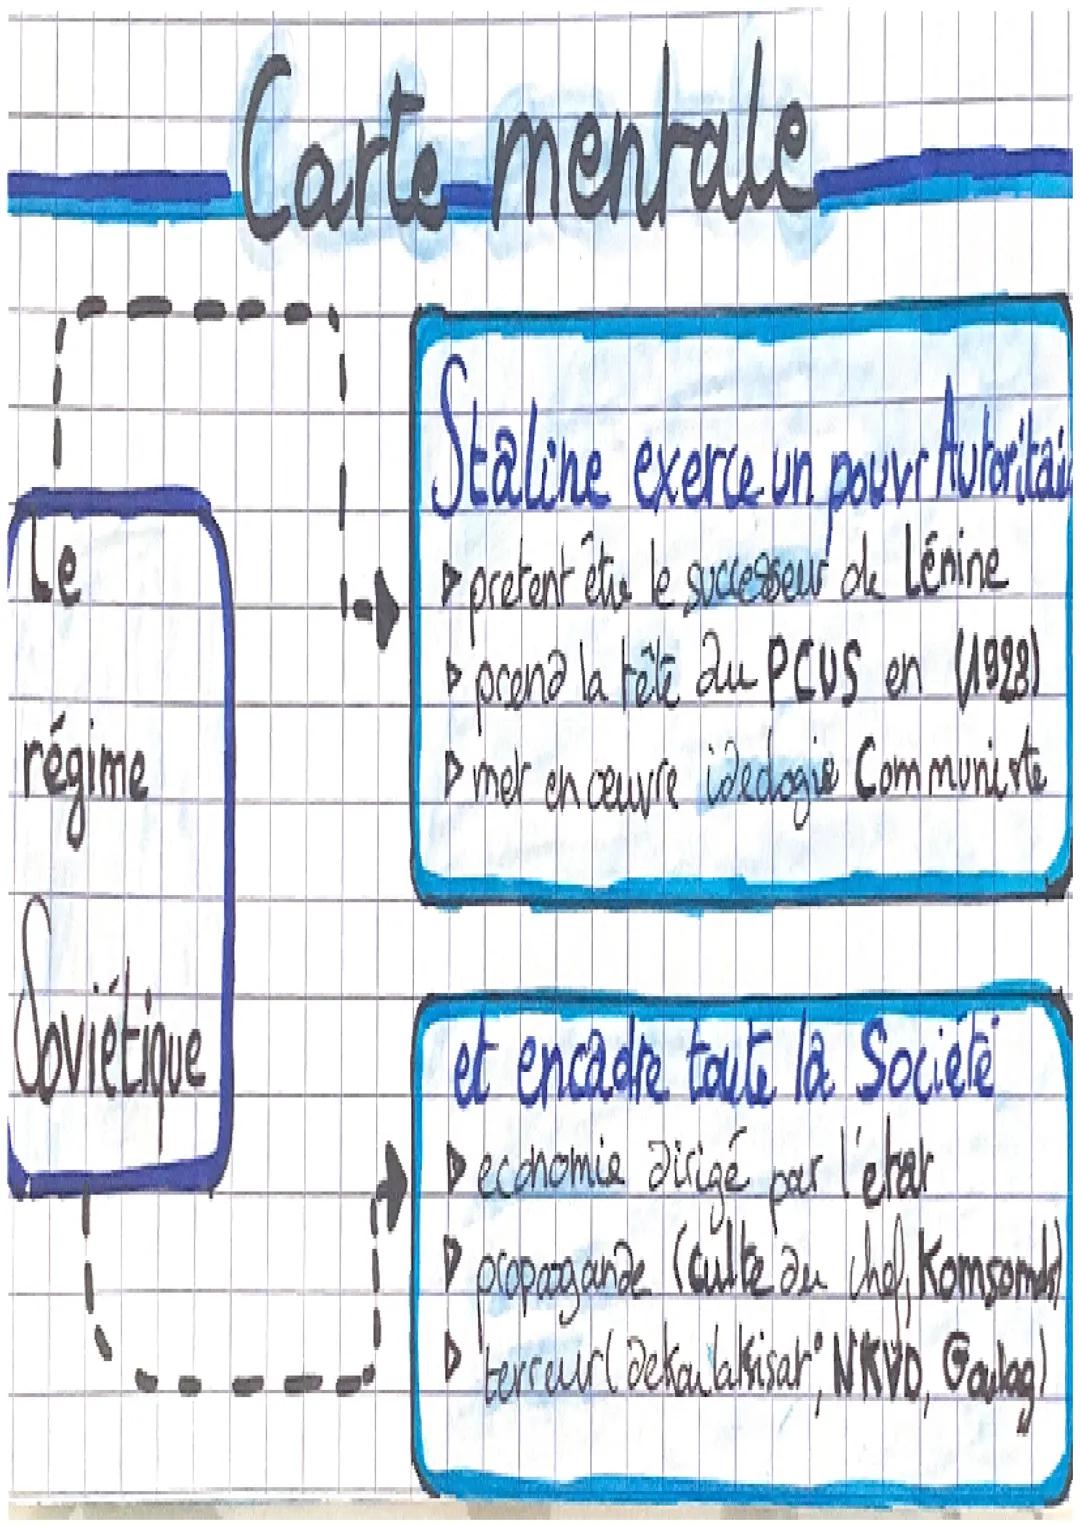 Carte mentale
Le
régime
Soviétique
Staline exerce un pouvr Autoritai
▷ pretent être le successeur de Lénine
▷ prend la tête du PCUS en (1928)
▷ met en œuvre idedogie Communiste
et encadre toute la Société
▷ economie dirigé par l'état
▷ propagande (culte du chef, Komsomols)
▷ terreur (dekoulakisat°, NKVD, Goulag)